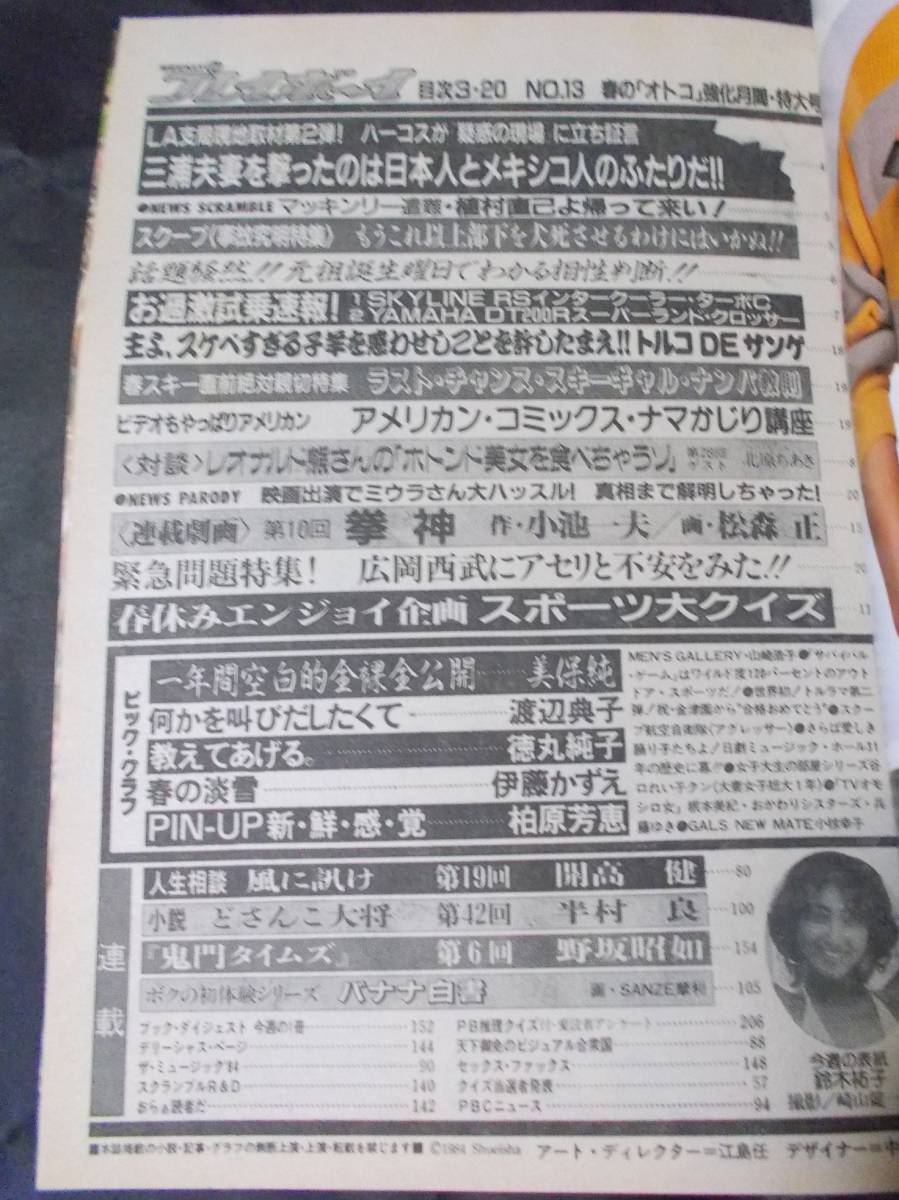 プレイボーイ 目次3・20 NO.13 春の「オトコ」強化月間・特大号
LA支局現地取材第2弾! ハーコスが「疑惑の現場」に立ち証言
三浦夫妻を撃ったのは日本人とメキシコ人のふたりだ!!
●NEWS SCRAMBLE マッキンリー遭難・植村直己よ帰って来い!
スクープ〈事故究明特集〉 もうこれ以上部下を犬死させるわけにはいかぬ!!
話題騒然!! 元祖誕生曜日でわかる相性判断!!
お過激試乗速報! 1 SKYLINE RSインタークーラー・ターボC
2 YAMAHA DT200Rスーパーランド・クロッサー
主よ、スケベすぎる子羊を惑わせしことを許したまえ!! トルコDEサンゲ 18
春スキー直前絶対親切特集 ラスト・チャンス・スキーギャル・ナンパ教則
ビデオもやっぱりアメリカン アメリカン・コミックス・ナマかじり講座
〈対談〉レオナルド熊さんの「ホトンド美女を食べちゃうゾ」 ゲスト 北原ちあき
●NEWS PARODY 映画出演でミウラさん大ハッスル! 真相まで解明しちゃった! 20
〈連載劇画〉第10回 拳神 作・小池一夫/画・松森 正 15
緊急問題特集! 広岡西武にアセリと不安をみた!! 20
春休みエンジョイ企画 スポーツ大クイズ 11
ビック・グラフ
一年間空白的全裸全公開 美保純
何かを叫びだしたくて 渡辺典子
教えてあげる。 徳丸純子
春の淡雪 伊藤かずえ
PIN-UP 新・鮮・感・覚 柏原芳恵
MEN'S GALLERY・山崎浩子●「サバイバル
・ゲーム」はワイルド度120パーセントのアウト
ドア・スポーツだ!●世界初!トルラマ第二
弾!/祝・金津園から"合格おめでとう"●スクー
プ航空自衛隊〈アグレッサー〉●さらば愛しき
踊り子たちよ!日劇ミュージック・ホール31
年の歴史に幕!?●女子大生の部屋シリーズ谷
口れい子クン(大妻女子短大1年)●「TVオモ
シロ女」根本美紀・おかわりシスターズ・兵
藤ゆき●GALS NEW MATE小枝幸子
連載
人生相談 風に訊け 第19回 開高 健 80
小説 どさんこ大将 第42回 半村 良 100
『鬼門タイムズ』 第6回 野坂昭如 154
ボクの初体験シリーズ バナナ白書 画・SANZE摩利 105
ブック・ダイジェスト 今週の1冊 152
デリーシャス・ページ 144
ザ・ミュージック'84 90
スクランブルR&D 140
おらぁ読者だ 142
PB推理クイズ付・愛読者アンケート 206
天下御免のビジュアル合衆国 88
セックス・ファックス 148
クイズ当選者発表 57
PBCニュース 94
今週の表紙
鈴木祐子
撮影/崎山健
■本誌掲載の小説・記事・グラフの無断上演・上演・転載を禁じます■ ©1984 Shueisha アート・ディレクター=江島任 デザイナー=中